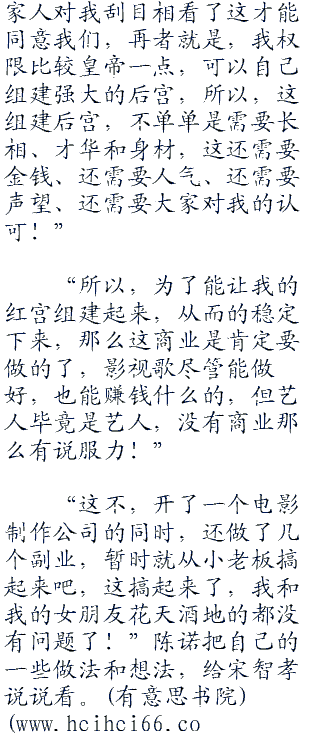 家人对我刮目相看了这才能
同意我们，再者就是，我权
限比较皇帝一点，可以自己
组建强大的后宫，所以，这
组建后宫，不单单是需要长
相、才华和身材，这还需要
金钱、还需要人气、还需要
声望、还需要大家对我的认
可！”
“所以，为了能让我的
红宫组建起来，从而的稳定
下来，那么这商业是肯定要
做的了，影视歌尽管能做
好，也能赚钱什么的，但艺
人毕竟是艺人，没有商业那
么有说服力！”
“这不，开了一个电影
制作公司的同时，还做了几
个副业，暂时就从小老板搞
起来吧，这搞起来了，我和
我的女朋友花天酒地的都没
有问题了！”陈诺把自己的
一些做法和想法，给宋智孝
说说看。(有意思书院)
(www.hcihci66.co